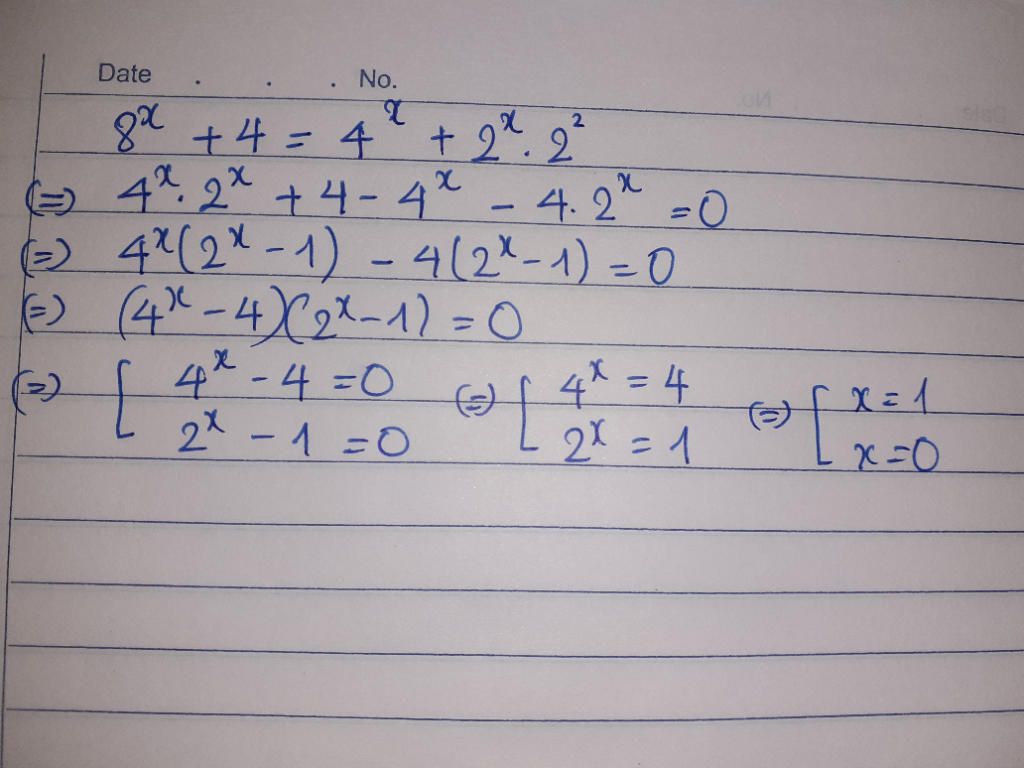 Date . . . No.
8^x + 4 = 4^x + 2^x . 2^2
(=) 4^x . 2^x + 4 - 4^x - 4. 2^x = 0
(=) 4^x(2^x - 1) - 4(2^x - 1) = 0
(=) (4^x - 4)(2^x - 1) = 0
(=) [ 4^x - 4 = 0 (=) [ 4^x = 4 (=) [ x = 1
2^x - 1 = 0 2^x = 1 x = 0